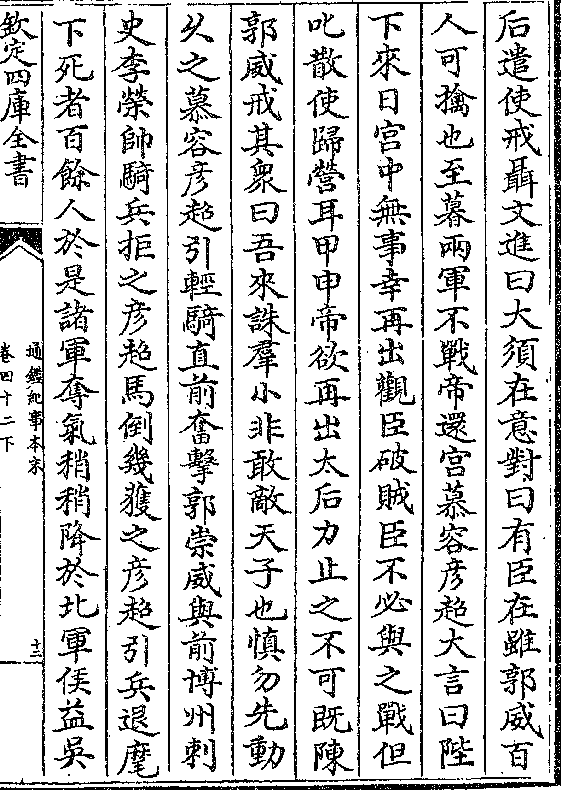 后遣使戒聶文進曰大須在意對曰有臣在雖郭威百
人可擒也至暮兩軍不戰帝還宫慕容彦超大言曰陛
下來日宫中無事幸再出觀臣破賊臣不必與之戰但
叱散使歸營耳甲申帝欲再出太后力止之不可既陳
郭威戒其衆曰吾來誅羣小非敢敵天子也慎勿先動
乆之慕容彦超引輕騎直前奮擊郭崇威與前博州刺
史李榮帥騎兵拒之彦超馬倒幾獲之彦超引兵退麾
下死者百餘人於是諸軍奪氣稍稍降於北軍侯益吳
欽定四庫全書
通鑑紀事本末
卷四十二下
十三